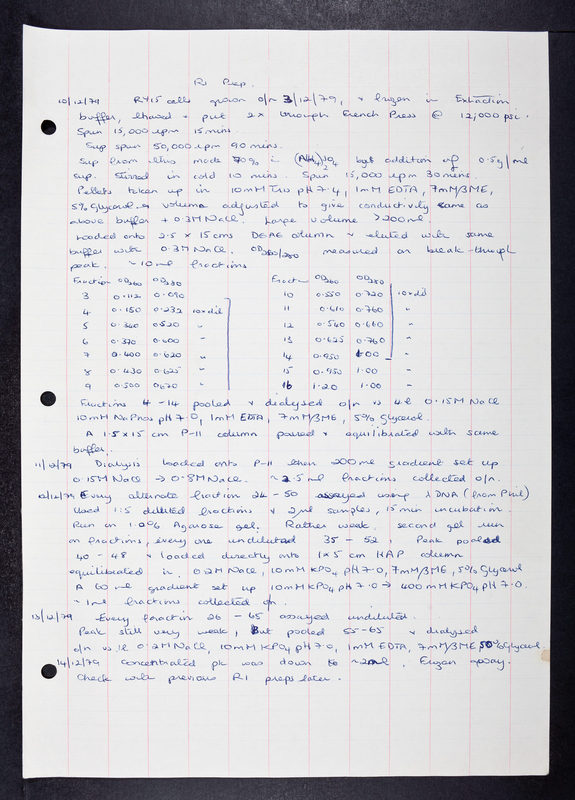 R1 Prep.
10/12/79 RY15 cells grown o/n 3/12/79, & frozen in Extraction
buffer, thawed & put 2x through French Press @ 12,000 psi.
Spun 15,000 rpm 15 mins.
Sup spun 50,000 rpm 90 mins.
Sup from this made 70% in (NH4)2SO4 by addition of 0.5g/ml
sup. Stirred in cold 10 mins. Spun 15,000 rpm 30 mins.
Pellets taken up in 10mM Tris pH 7.4, 1mM EDTA, 7mM βME,
5% Glycerol & volume adjusted to give conductivity same as
above buffer + 0.3M NaCl. Large volume >200ml.
Loaded onto 2.5 x 15cms DEAE column & eluted with same
buffer with 0.3M NaCl. OD260/280 measured on break-through
peak. ~10ml fractions
Fraction OD260 OD280 Fraction OD260 OD280
3 0.112 0.090 10 0.550 0.720 10x dil
4 0.150 0.232 10x dil 11 0.610 0.760 "
5 0.340 0.520 " 12 0.540 0.660 "
6 0.370 0.600 " 13 0.625 0.760 "
7 0.400 0.620 " 14 0.950 1.00 "
8 0.430 0.625 " 15 0.950 1.00 "
9 0.500 0.670 " 16 1.20 1.00 "
Fractions 4-14 pooled & dialysed o/n vs 4l 0.15M NaCl
10mM NaPhos pH 7.0, 1mM EDTA, 7mM βME, 5% Glycerol.
A 1.5x15 cm P-11 column poured & equilibrated with same
buffer.
11/12/79 Dialysis loaded onto P-11 then 200ml gradient set up
0.15M NaCl → 0.8M NaCl. ~2.5ml fractions collected o/n.
12/12/79 Every alternate fraction 24-50 assayed using λ DNA (from Phil)
Used 1:5 diluted fractions & 2ml samples, 15 min incubation.
Run on 1.0% Agarose gel. Rather weak, second gel run
on fractions, every one undiluted 35-52, Peak pooled
40-48 & loaded directly onto 1x5 cm HAP column
equilibrated in 0.2M NaCl, 10mM KPO4 pH 7.0, 7mM βME, 5% Glycerol
A 60ml gradient set up 10mM KPO4 pH 7.0 → 400mM KPO4 pH 7.0.
~1ml fractions collected o/n.
13/12/79 Every fraction 26-65 assayed undiluted.
Peak still very weak, But pooled 55-65 & dialysed
o/n vs 1l 0.2M NaCl, 10mM KPO4 pH 7.0, 1mM EDTA, 7mM βME, 50% Glycerol
14/12/79 Concentrated pk was down to ~2ml. Enzyme away.
Check with previous R1 preps later.